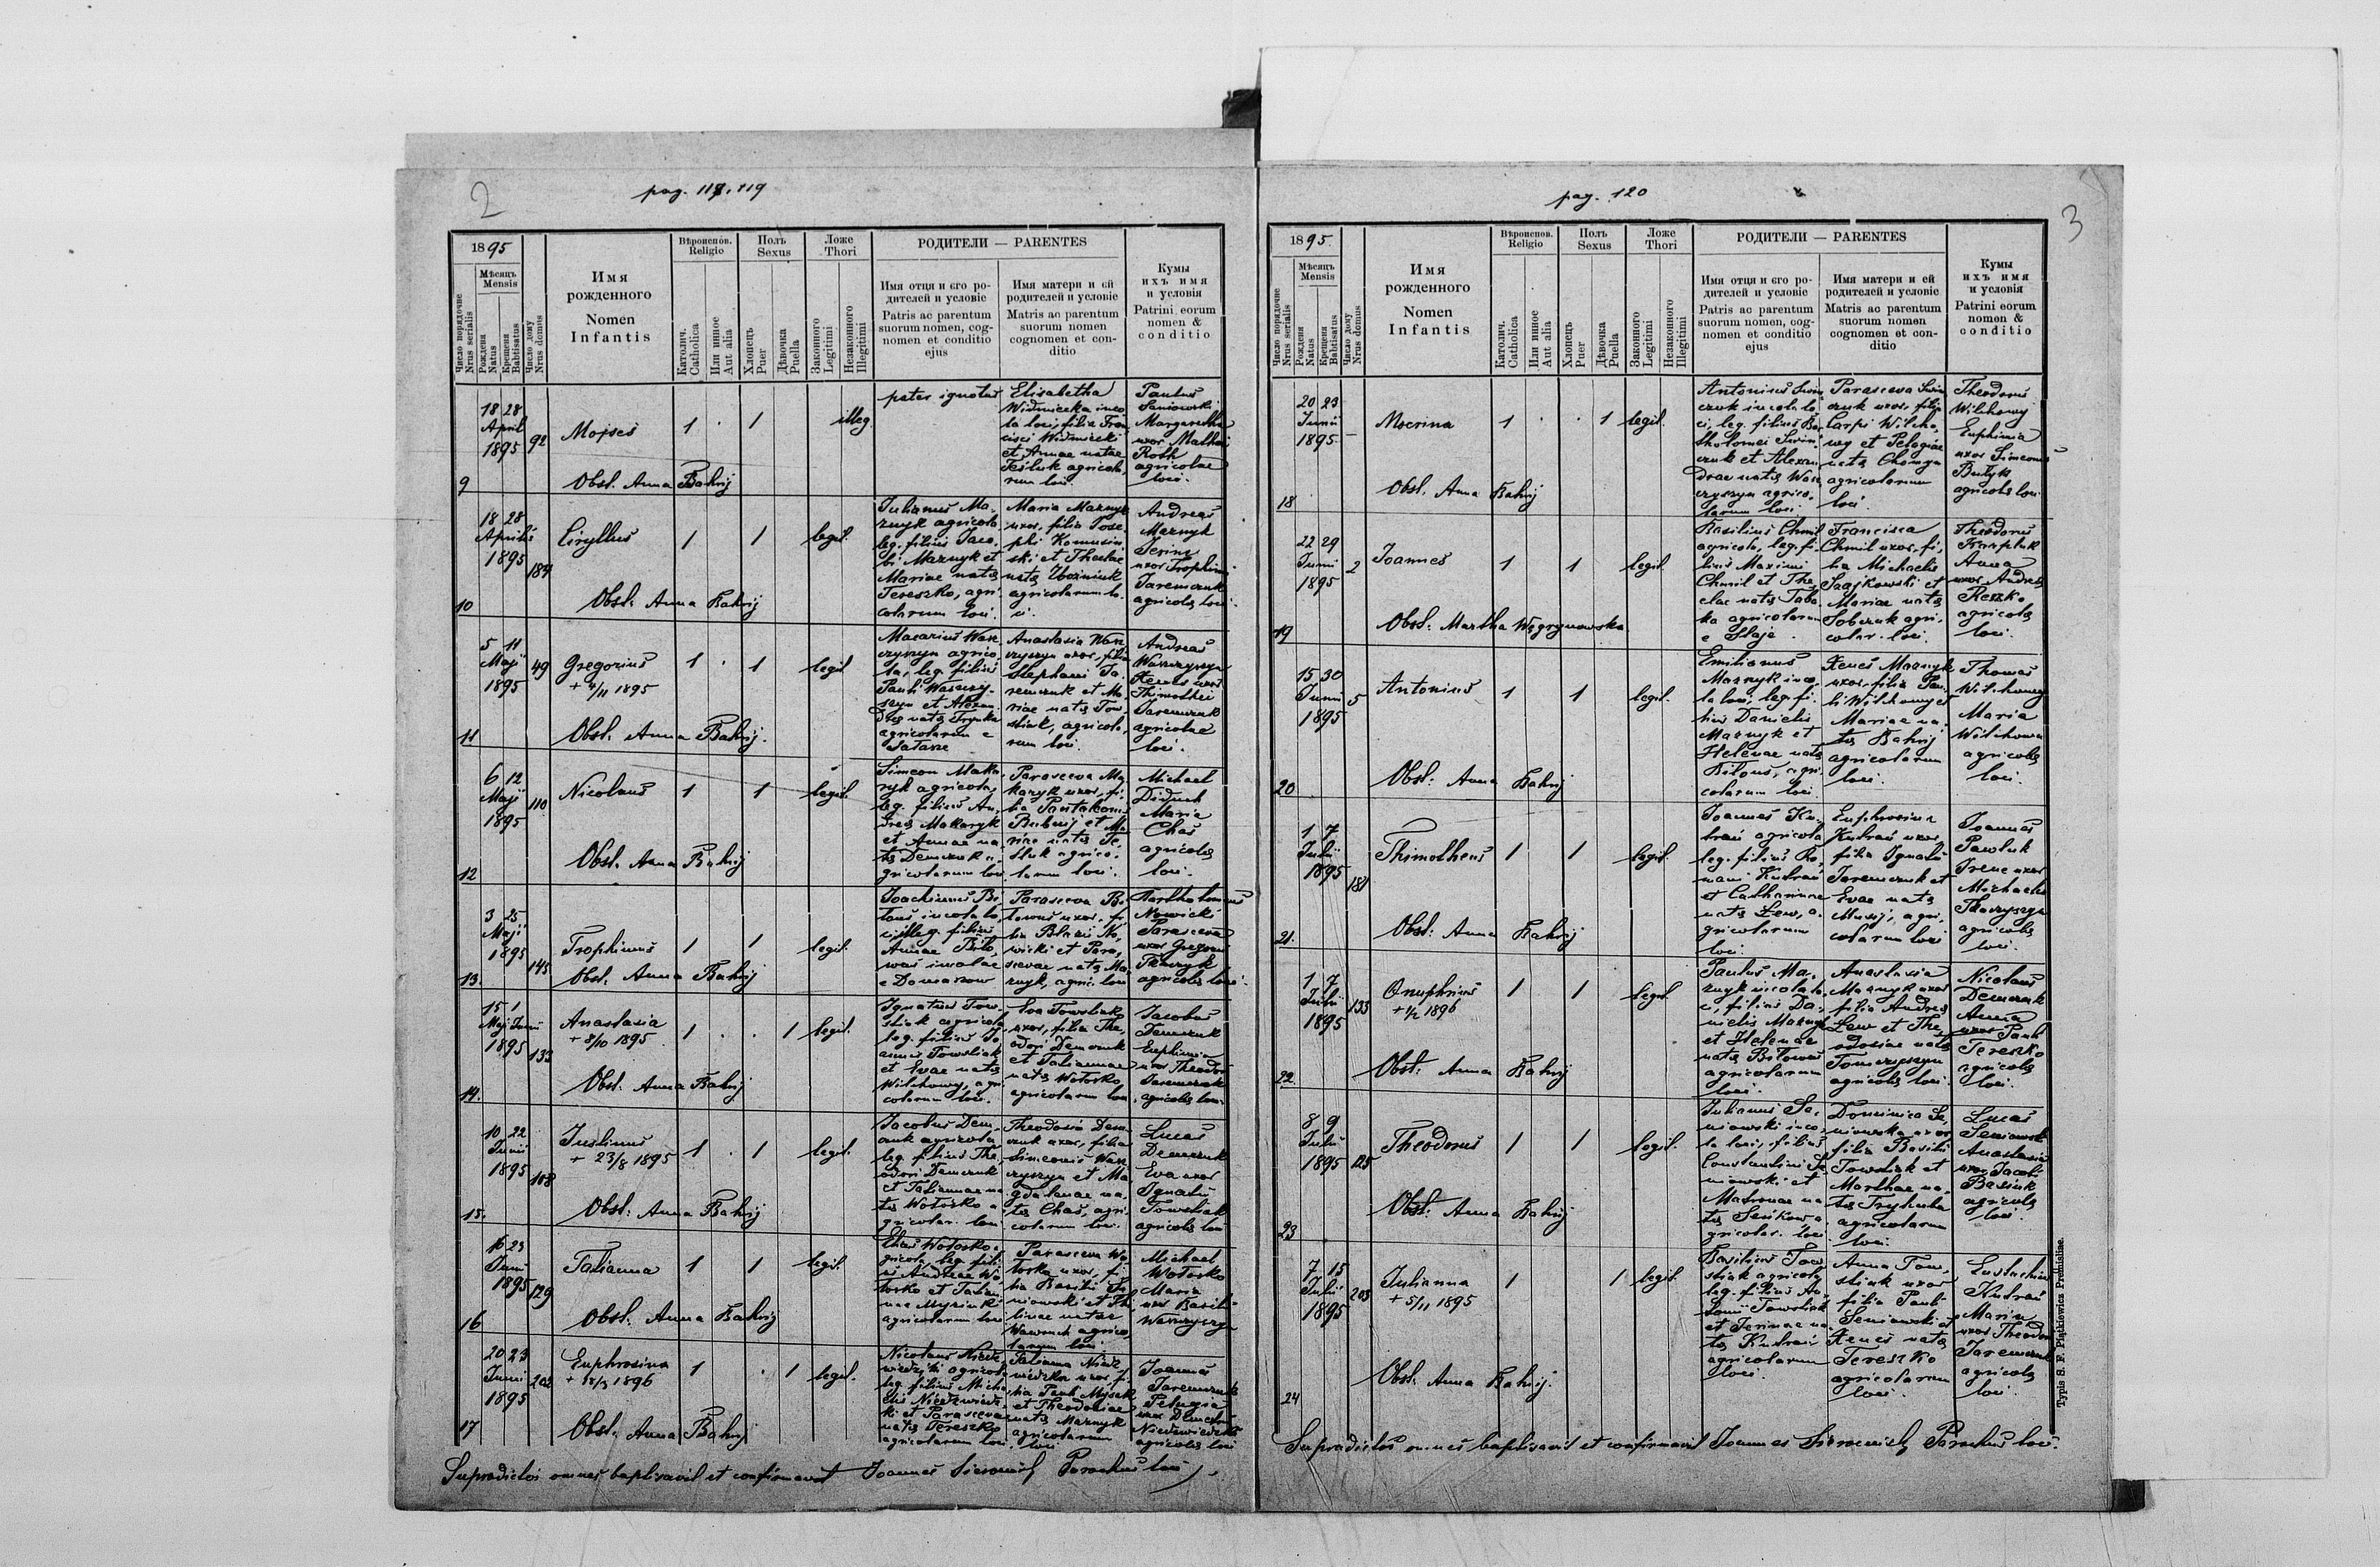 2
pag. 118, 119
1895
Мѣсяцъ
Mensis
Число порядочне
Nrus serialis
Рожденя
Natus
Крещеня
Babtisatus
Число дому
Nrus domus
Имя
рожденного
Nomen
Infantis
Вѣроиспов.
Religio
Католич.
Catholica
Или инное
Aut alia
Полъ
Sexus
Хлопецъ
Puer
Дѣвочка
Puella
Ложе
Thori
Законного
Legitimi
Незаконного
Illegitimi
РОДИТЕЛИ — PARENTES
Имя отця и єго ро-
дителей и условіе
Patris ac parentum
suorum nomen, cog-
nomen et conditio
ejus
Имя матери и єй
родителей и условіе
Matris ac parentum
suorum nomen
cognomen et con-
ditio
Кумы
ихъ имя
и условія
Patrini eorum
nomen &
conditio
9
18 28
April
1895
92
Mojses
1 1 illeg
Obst. Anna Bahrij
pater ignotus
Elisabetha
la loci, filia Fran
cisci
et Annae natae
agricola
rum loci.
Paulus
Seniowski
Margaretha
uxor Mathei
Roth
agricolae
loci.
10
18 28
Aprilis
1895
189
Ciryllus
1 1 legit.
Obst. Anna Bahrij
Julianus Ma-
znyk agricola
leg. filius Jaco-
bi Maznyk et
Mariae natae
Tereszko, agri-
colarum loci.
Maria Maznyk
uxor, filia Jose-
phi
ski et Theclae
natae Woźniuk
agricolarum lo-
ci.
Andreas
Maznyk
Jerina
uxor Trophimi
Jaremczuk
agricolae loci.
11
5 11
Maji
1895
49
Gregorius
+ 4/11 1895
1 1 legit
Obst. Anna Bahrij.
Macarius Wasz
czyszyn agrico-
la, leg. filius
Pauli Waszczy-
szyn et Alexan-
drae natae Hrynka
agricolarum e
Anastasia Wasz
czyszyn uxor, filia
Stephani Ja-
remczuk et Ma-
riae natae Tow-
stiuk, agricola-
rum loci.
Andreas
Waszczyszyn
Xenia uxor
Thimothei
Jaremczuk
agricolae
loci.
12
6 12
Maji
1895
110
Nicolaus
1 1 legit.
Obst. Anna Bahrij
Simeon Maka-
ryk agricola,
leg. filius An-
dreae Makaryk
et Annae na-
tae Demczuk a-
gricolarum loci
Parasceva Ma-
karyk uxor, fi-
lia Pantaleoni
et Ma-
riae natae Te-
sluk agrico-
larum loci.
Michael
Diduch
Maria
Chaś
agricolae
loci.
13.
3 25
Maji
1895
145
Trophimus
1 1 legit.
Obst. Anna Bahrij
Joachimus Bi-
lous incola lo-
ci illeg. filius
Annae Biło-
was incolae
e Domaszow
Parasceva Bi-
lowus uxor, fi-
lia Blasii No-
wicki et Para-
scevae natae Ma-
znyk, agric. loci
Bartholomeus
Nowicki
Parasceva
uxor Gregorii
agricolae loci.
14.
15 1
Maji Junii
1895
133
Anastasia
+ 8/10 1895
1 1 legit.
Obst. Anna Bahrij
Ignatius Tow-
stiuk agricola
leg. filius Jo-
annis Towstiuk
et Evae natae
Wilchowy, agri-
colarum loci.
Eva Towstiuk
uxor, filia The-
odori Demczuk
et Tatiannae
natae Wołosko
agricolarum loci.
Jacobus
Demczuk
Euphimia
uxor Theodori
Jaremczuk
agricolae loci.
15.
10 22
Junii
1895
108
Justinus
+ 23/8 1895
1 1 legit.
Obst. Anna Bahrij
Jacobus Dem-
czuk agricola
leg. filius The-
odori Demczuk
et Tatiannae na
tae Wołosko a-
gricolar. loci
Theodosia Dem-
czuk uxor, filia
Simeonis Wasz
czyszyn et Ma-
gdalenae na-
tae Chaś, agri-
colarum loci.
Lucas
Demczuk
Eva uxor
Ignatii
Towstiuk
agricolae loci
16
16 23
Junii
1895
129
Tatianna
1 1 legit.
Obst. Anna Bahrij
Elias Wołosko a-
gricola leg. fili-
us Andreae Wo-
łosko et Tatian-
nae
agricolarum loci
Parasceva Wo-
łosko uxor, fi-
lia Basilii Se-
niowski et
natae
Wawruch agrico-
larum loci.
Michael
Wołosko
Maria
uxor Basilii
Waszczyszyn
17
20 23
Junii
1895
202
Euphrosina
+ 18/3 1896
1 1 legit.
Obst. Anna Bahrij
Nicolaus Niedz-
wiedzki agricola
leg. filius Micha-
elis Niedzwiedz-
ki et Parascevae
natae Tereszko
agricolarum loci
Tatianna Niedz-
wiedzka uxor fi-
lia Pauli
et Theodosiae
natae Maznyk
agricolarum
loci
Joannes
Jaremczuk
Pelagia
uxor Demetrii
Niedzwiedzki
agricolae loci
Supradictos omnes baptisavit et confirmavit Joannes Parochus loci
3
pag. 120
1895.
Мѣсяцъ
Mensis
Число порядочне
Nrus serialis
Рожденя
Natus
Крещеня
Babtisatus
Число дому
Nrus domus
Имя
рожденного
Nomen
Infantis
Вѣроиспов.
Religio
Католич.
Catholica
Или инное
Aut alia
Полъ
Sexus
Хлопецъ
Puer
Дѣвочка
Puella
Ложе
Thori
Законного
Legitimi
Незаконного
Illegitimi
РОДИТЕЛИ — PARENTES
Имя отця и єго ро-
дителей и условіе
Patris ac parentum
suorum nomen, cog-
nomen et conditio
ejus
Имя матери и єй
родителей и условіе
Matris ac parentum
suorum nomen
cognomen et con-
ditio
Кумы
ихъ имя
и условія
Patrini eorum
nomen &
conditio
18
20 23
Junii
1895
Mocrina
1 1 legit.
Obst. Anna Bahrij
Antonius
czuk incola lo-
ci, leg. filius Bar-
tholomei
czuk et Alexan-
drae natae Wasz-
czyszyn agrico-
larum loci
Parasceva
czuk uxor, filia
Carpi Wilcho-
wy et Pelagiae
natae
agricolarum
loci.
Theodorus
Wilchowy
Euphimia
uxor Simeonis
agricolae loci
19
22 29
Junii
1895
2
Joannes
1 1 legit.
Obst. Martha Węgrynowska
Basilius Chmil
agricola, leg. fi-
lius Maximi
Chmil et The-
clae natae Taba-
ka agricolarum
e Staje.
Francisca
Chmil uxor, fi-
lia Michaelis
et
Mariae natae
Sobczuk agri-
colar. loci.
Theodorus
Anna
uxor Andreae
Reszko
agricolae
loci.
20
15 30
Junii
1895
5
Antonius
1 1 legit.
Obst. Anna Bahrij
Emilianus
Maznyk inco-
la loci, leg. fi-
lius Danielis
Maznyk et
Helenae natae
Bilous, agri-
colarum loci
Xenes Maznyk
uxor, filia Pau-
li Wilchowy et
Mariae na-
tae Bahrij
agricolarum
loci.
Thomas
Wilchowy
Maria
Wilchowa
agricolae
loci.
21.
1 7
Julii
1895
181
Thimotheus
1 1 legit.
Obst. Anna Bahrij
Joannes Ku-
trań agricola
leg. filius Ro-
mani Kutrań
et Catharinae
natae Lew, a-
gricolarum
loci.
Euphrosina
Kutrań uxor,
filia Ignatii
Jaremczuk et
Evae natae
agri-
colarum loci
Joannes
Pawluk
Irene uxor
Michaelis
agricolae
loci.
22
1 7
Julii
1895
133
Onuphrius
+ 1/2 1896
1 1 legit.
Obst. Anna Bahrij
Paulus Ma-
znyk incola lo-
ci, filius Da-
nielis Maznyk
et Helenae
natae Bilowus
agricolarum
loci.
Anastasia
Maznyk uxor
filia Andreae
Lew et The-
odosiae natae
agricolae loci.
Nicolaus
Demczuk
Anna
uxor Pauli
Tereszko
agricolae
loci.
23
8 9
Julii
1895
125
Theodorus
1 1 legit.
Obst. Anna Bahrij
Julianus Se-
niowski inco-
la loci, filius
Constantini Se-
niowski et
Matronae na-
tae Senkow a-
gricolar. loci
Dominica Se-
niowska uxor
filia Basilii
Towstiuk et
Marthae na-
tae
agricolarum
loci.
Lucas
Seniowski
Anastasia
uxor Jacobi
agricolae
loci.
24
7 15
Julii
1895
203
Julianna
+ 5/11 1895
1 1 legit.
Obst. Anna Bahrij.
Basilius Tow-
stiuk agricola
leg. filius An-
tonii Towstiuk
et Jerinae na-
tae Kutrań
agricolarum
loci.
Anna Tow-
stiuk uxor
filia Pauli
Seniowski et
Xenes natae
Tereszko
agricolarum
loci.
Eustachius
Kutrań
Maria
uxor Theodori
Jaremczuk
agricolae
loci.
Supradictos omnes baptisavit et confirmavit Joannes Parochus loci.
Typis S. F. Piątkiewicz Premisliae.